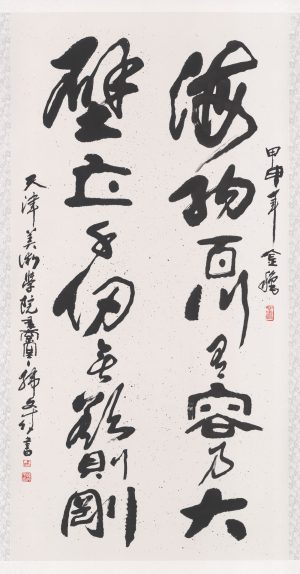 甲申年
海納百川有容乃大
壁立千仞無欲則剛
天津美術學院